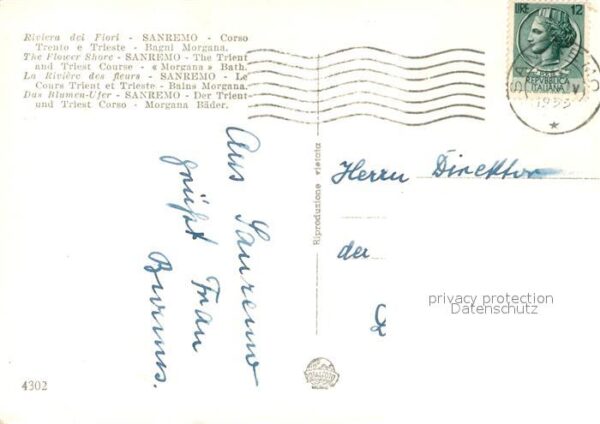 Riviera dei Fiori - SANREMO - Corso
Trento e Trieste - Bagni Morgana.
The Flower Shore - SANREMO - The Trient
and Triest Course - « Morgana » Bath.
La Rivière des fleurs - SANREMO - Le
Cours Trient et Trieste - Bains Morgana.
Das Blumen-Ufer - SANREMO - Der Trient
und Triest Corso - Morgana Bäder.
LIRE 12
REPUBBLICA
ITALIANA
Aus Sanremo
grüßt Frau
Riproduzione vietata
Herrn Direktor
der
privacy protection
Datenschutz
4302